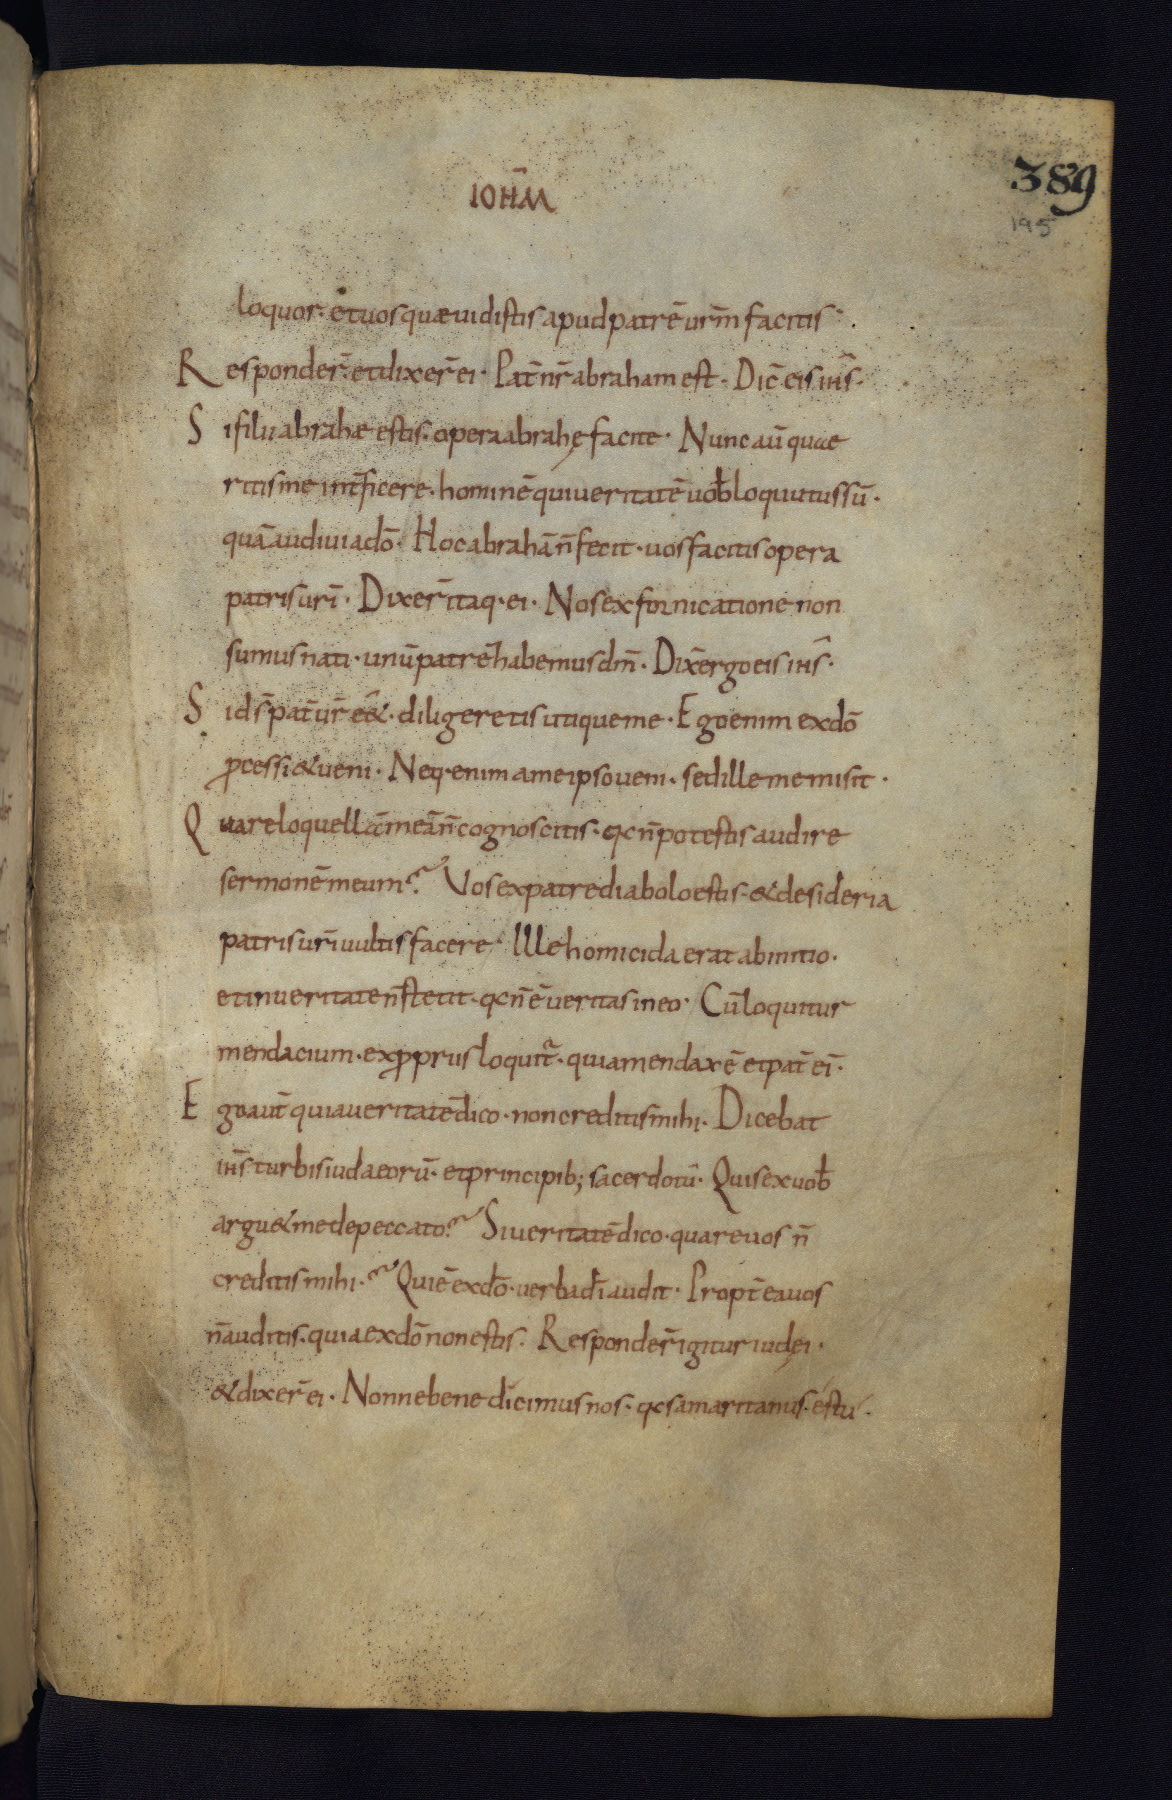 IOHM̄
389
195
loquor· et uos quæ uidistis apud patrē ur̄m facitis·
Responder̄· et dixer̄ ei· Pat̄ nr̄ abraham est· Dic̄ eis ih̄s·
Si filii abrahæ estis· opera abrahę facite· Nunc aū quae
ritis me int̄ficere· hominē qui veritatē uob̄ loquutus sū·
quā audiui a dō· Hoc abrahā n̄ fecit· uos facitis opera
patris ur̄i· Dixer̄ itaq· ei· Nos ex fornicatione non
sumus nati· unū patrē habemus dm̄· Dix̄ ergo eis ih̄s·
Si ds̄ pat̄ ur̄ eē&· diligeretis utique me· Ego enim ex dō
ꝓcessi & ueni· Neq· enim a me ipso veni· sed ille me misit·
Quare loquellā meā n̄ cognoscitis· qc n̄ potestis audire
sermonē meum? Vos ex patre diabolo estis· & desideria
patris ur̄i uultis facere· Ille homicida erat ab initio·
et in veritate n̄ stetit· qc n̄ ē veritas in eo· Cū loquitur
mendacium· ex ꝓpriis loquit̄· quia mendax ē et pat̄ ei·
Ego aut̄ quia veritatē dico· non creditis mihi· Dicebat
ih̄s turbis iudaeorū· et principib; sacerdotū· Quis ex uob̄
argu& me de peccato? Si veritatē dico· quare uos n̄
creditis mihi·? Qui ē ex dō· verba dī audit· Propt̄ ea uos
n̄ auditis· quia ex dō non estis· Responder̄ igitur iudęi·
& dixer̄ ei· Nonne bene dicimus nos· qc samaritanus· és tú·